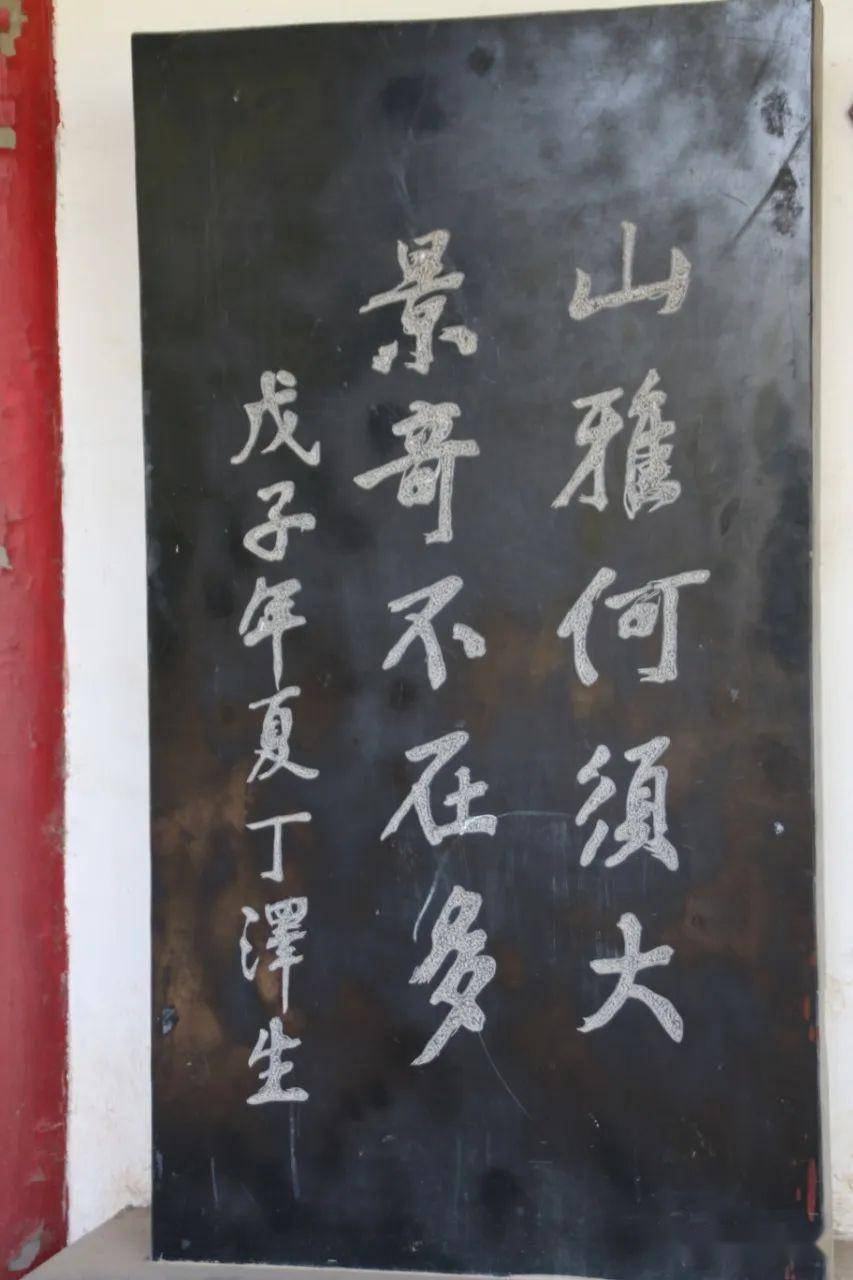 山雅何須大
景奇不在多
戊子年夏丁澤生